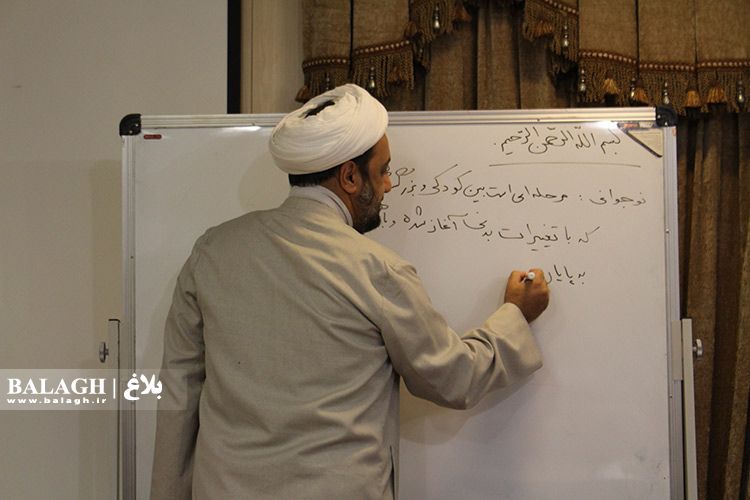 بسم الله الرحمن الرحیم.
نوجوانی : مرحله‌ای است بین کودکی و بزرگ
که با تغییرات بدنی آغاز شده و با
به پایان
BALAGH | بلاغ
www.balagh.ir